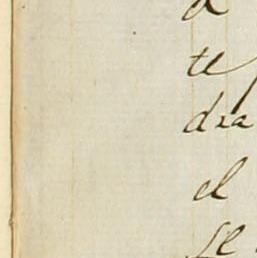 te
dia
el
se